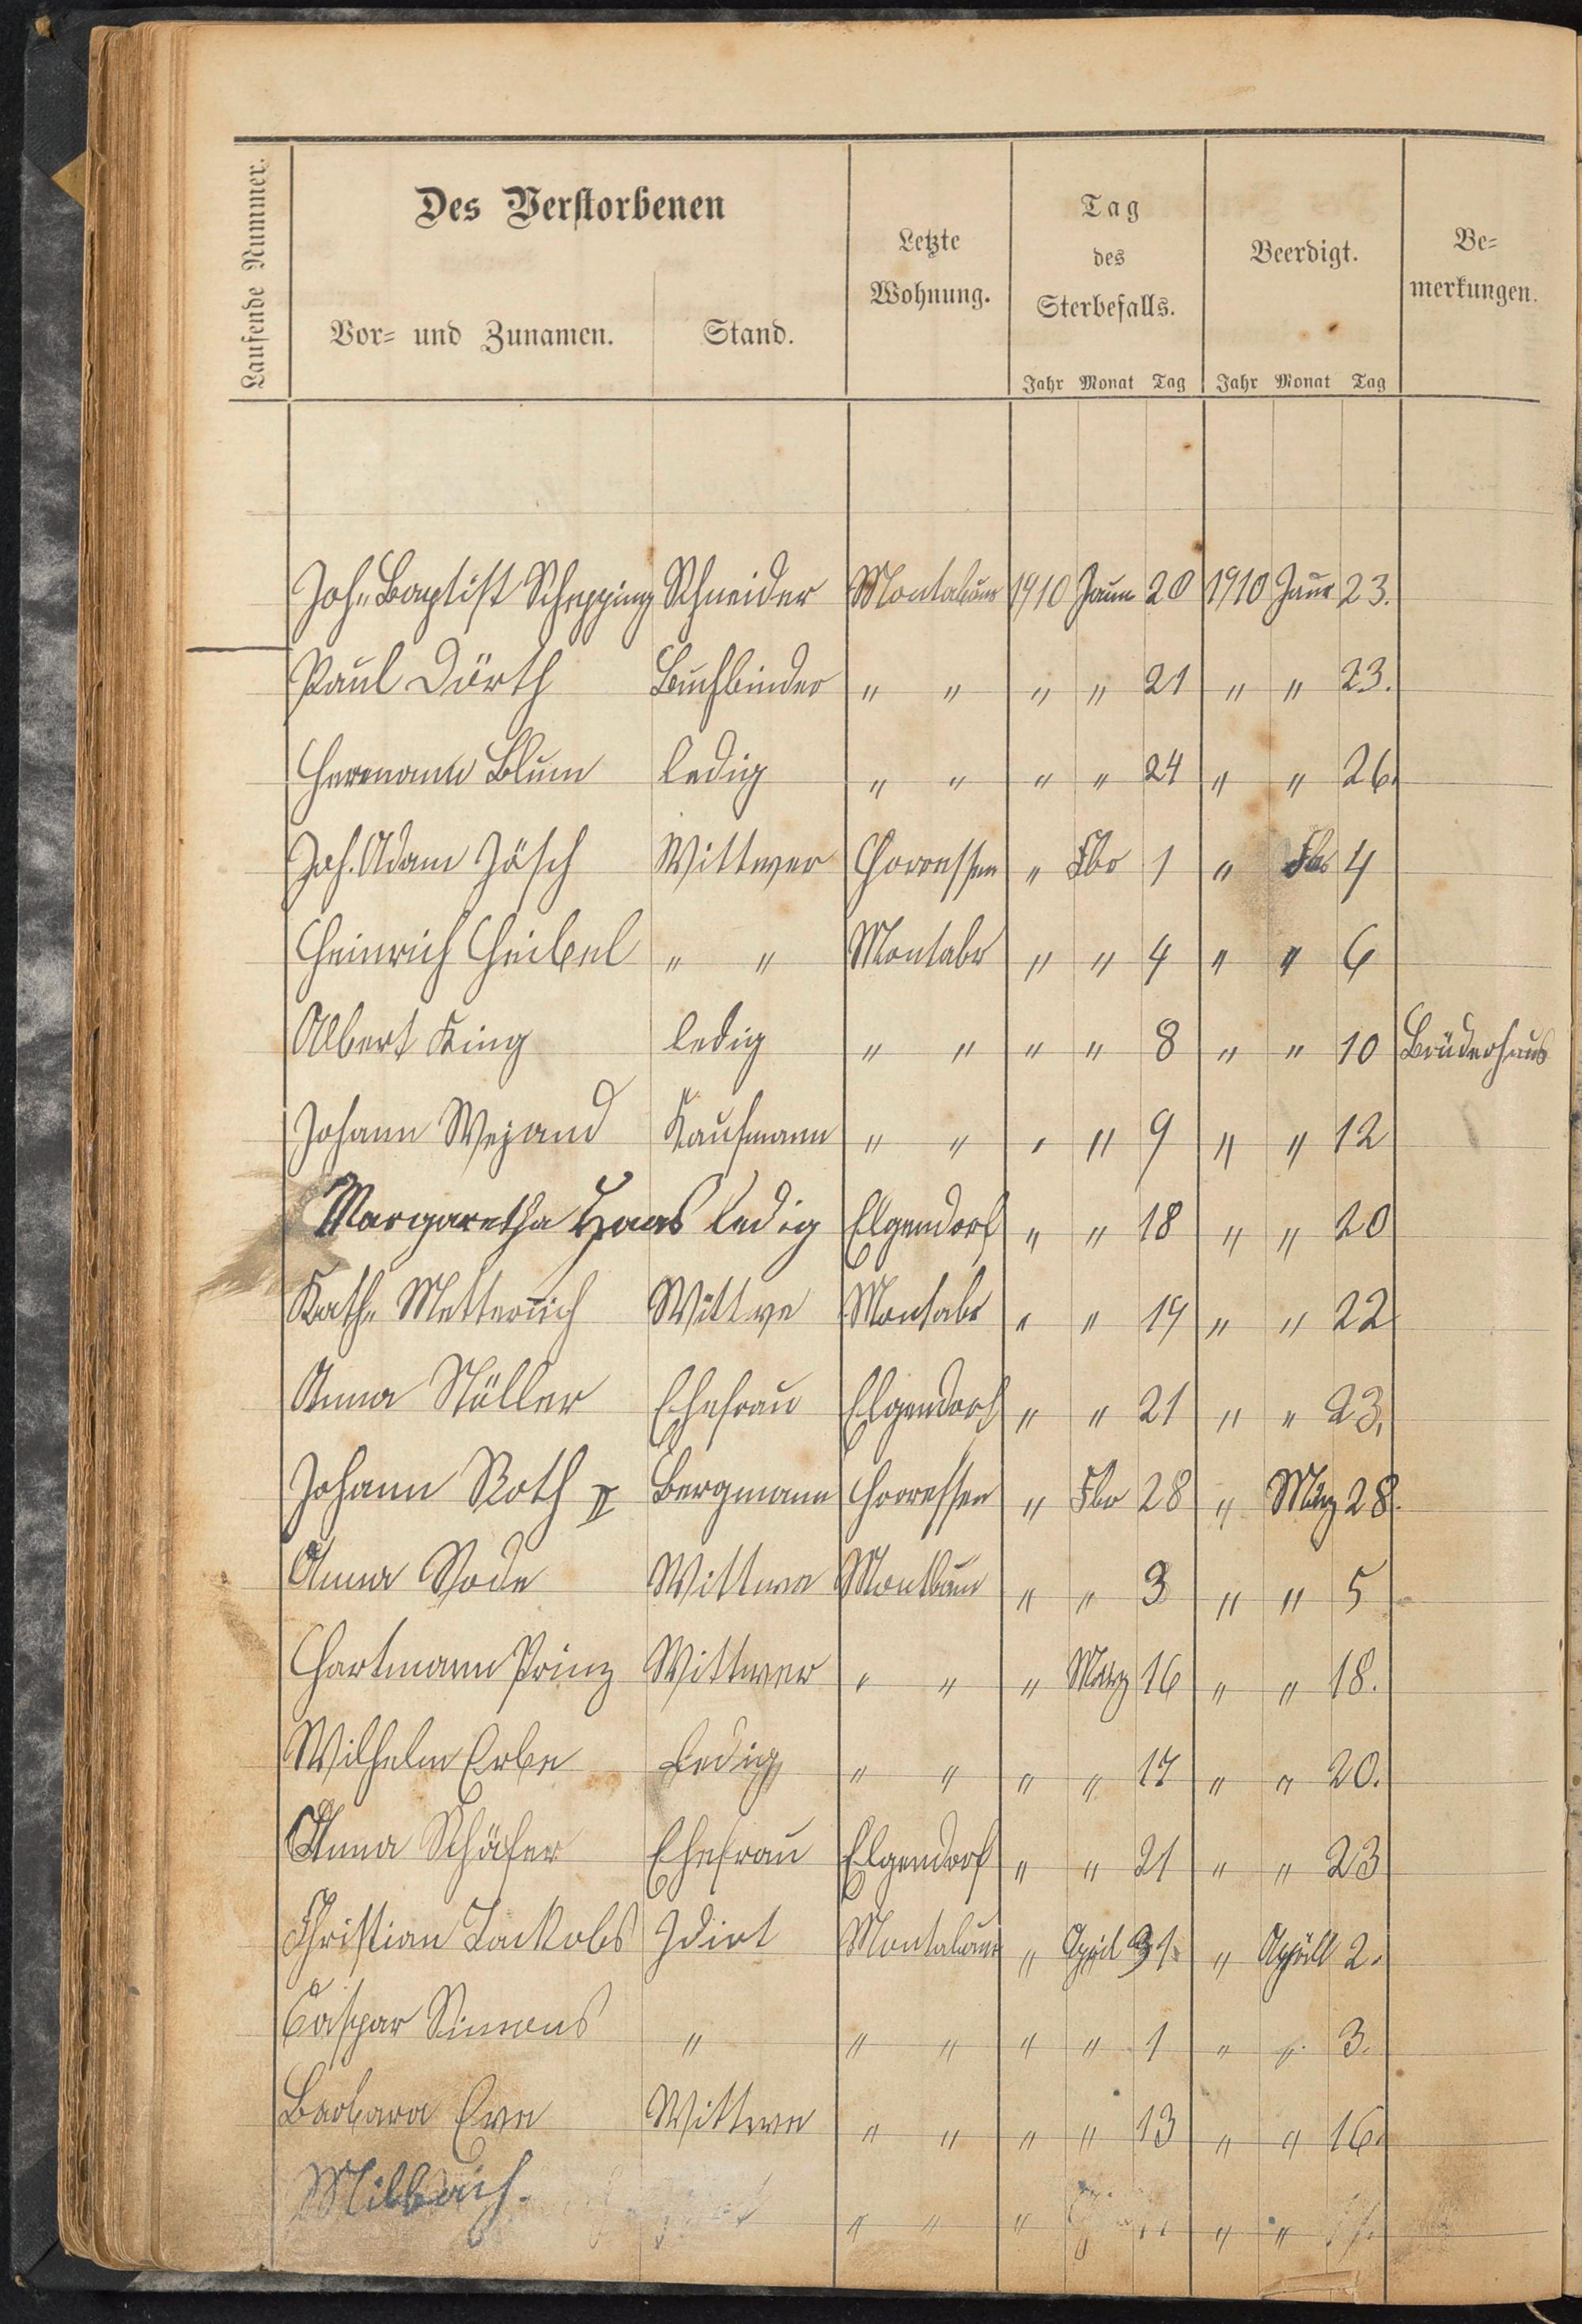 Laufende Nummer.
Des Verstorbenen
Vor= und Zunamen.
Stand.
Letzte
Wohnung.
Tag
des
Sterbefalls.
Jahr Monat Tag
Beerdigt.
Jahr Monat Tag
Be=
merkungen.
Joh. Baptist Schepping Schneider Montabaur 1910 Janu 20 1910 Janr 23.
Paul Dörth Buchbinder " " " " 21 " " 23.
Hermann Blum ledig " " " " 24 " " 26.
Joh. Adam Jösch Wittwer Horressen " Fbr 1 " Fbr 4
Heinrich Heibel " " Montabr " " 4 " " 6
Albert King ledig " " " " 8 " " 10 Brüderhaus
Johann Weÿand Kaufmann " " " " 9 " " 12
Margaretha Haas ledig Elgendorf " " 18 " " 20
Kath. Metternich Wittwe Montabr " " 19 " " 22
Anna Müller Ehefrau Elgendorf " " 21 " " 23.
Johann Roth II Bergmann Horressen " Fbr 28 " März 28.
Anna Wittwe " " 3 " " 5
Hartmann Prinz Wittwer " " " März 16 " " 18.
Wilhelm Erbe Ledig " " " " 17 " " 20.
Anna Schäfer Ehefrau Elgendorf " " 21 " " 23
Christian Jackobs Idiot Montabaur " April 31. " Aprill 2.
Caspar Simons " " " " " 1 " " 3.
Barbara Eva Wittwe " " " " 13 " " 16.
Milbach. " " " " "